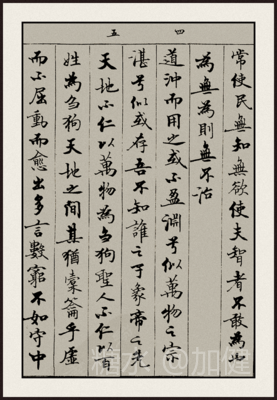 四
五
常使民無知無欲使夫智者不敢為也
為無為則無不治
道沖而用之或不盈淵兮似萬物之宗
湛兮似或存吾不知誰之子象帝之先
天地不仁以萬物為芻狗聖人不仁以百
姓為芻狗天地之間其猶橐籥乎虛
而不屈動而愈出多言數窮不如守中
@加健